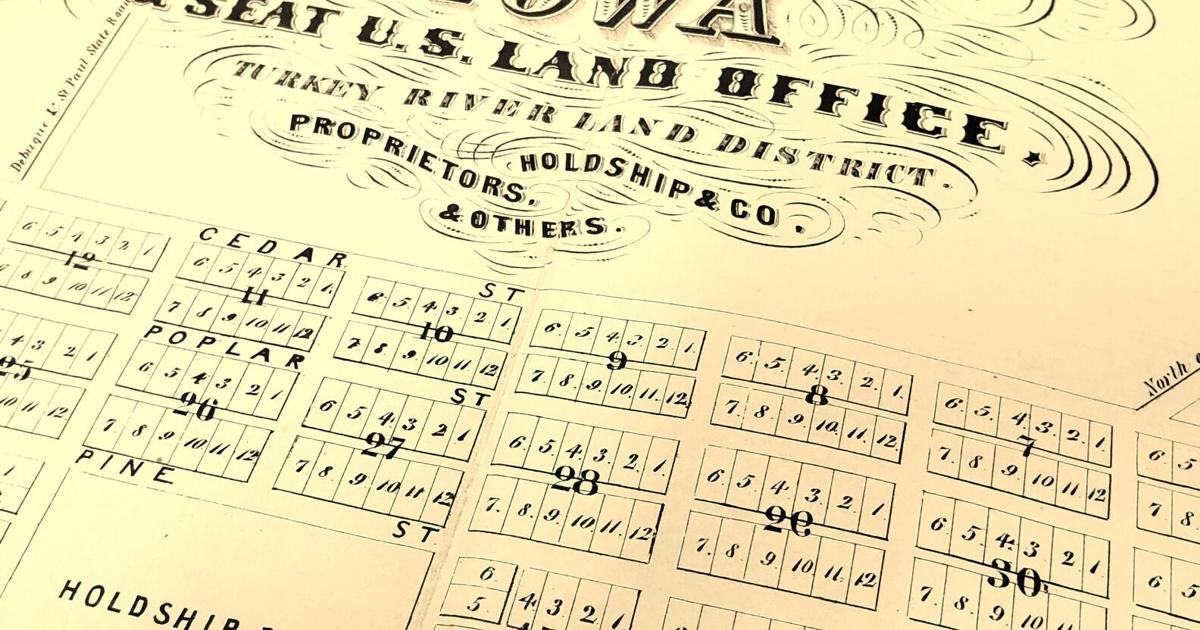 IOWA
SEAT U.S. LAND OFFICE.
TURKEY RIVER LAND DISTRICT.
PROPRIETORS,
HOLDSHIP & CO.
& OTHERS.
Debuque & St Paul State Road
North
CEDAR ST
6 5 4 3 2 1
12
7 8 9 10 11 12
6 5 4 3 2 1
11
7 8 9 10 11 12
6 5 4 3 2 1
10
7 8 9 10 11 12
6 5 4 3 2 1
9
7 8 9 10 11 12
6 5 4 3 2 1
8
7 8 9 10 11 12
6 5 4 3 2 1
7
7 8 9 10 11 12
6 5
7 8
POPLAR ST
4 3 2 1
25
10 11 12
6 5 4 3 2 1
26
7 8 9 10 11 12
6 5 4 3 2 1
27
7 8 9 10 11 12
6 5 4 3 2 1
28
7 8 9 10 11 12
6 5 4 3 2 1
29
7 8 9 10 11 12
6 5 4 3 2 1
30
7 8 9 10 11 12
6 5
PINE ST
1
HOLDSHIP
6
5 4 3 2 1